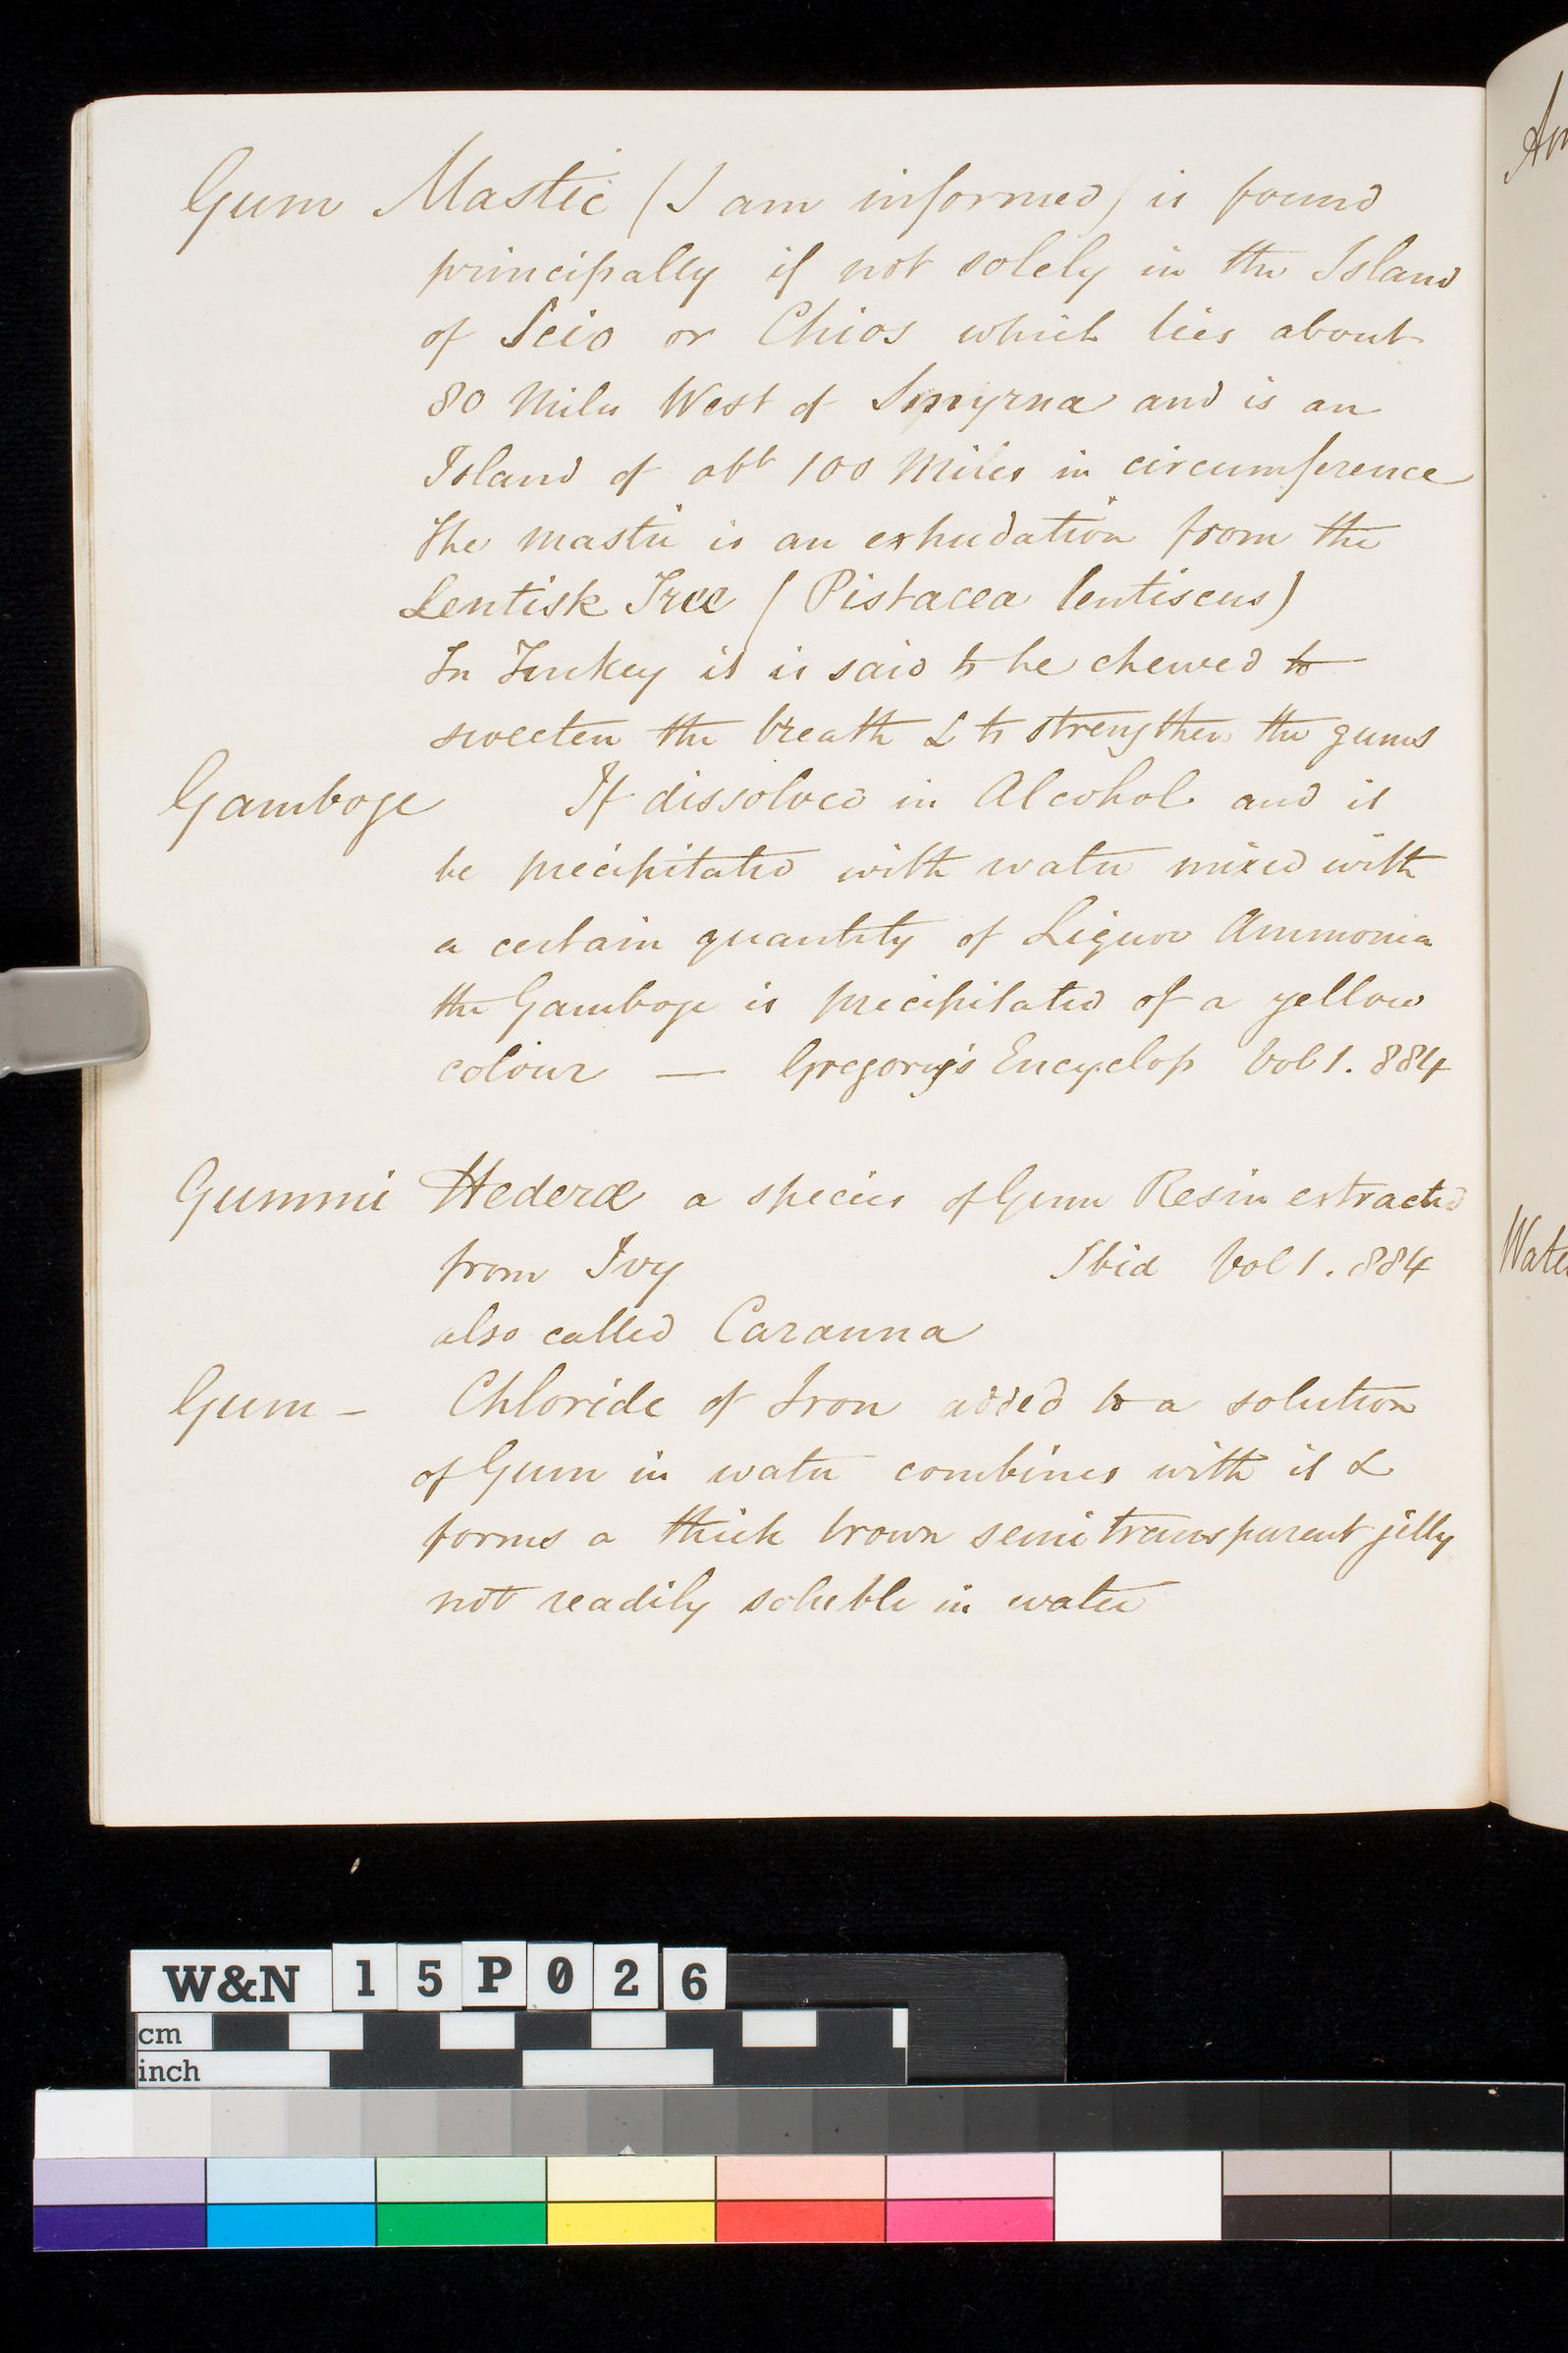 Gum Mastic (I am informed) is found
principally if not solely in the Island
of Scio or Chios which lies about
80 Miles West of Smyrna and is an
Island of abt 100 Miles in circumference
The mastic is an exhudation from the
Lentisk Tree (Pistacea lentiscus)
In Turkey it is said to be chewed to
sweeten the breath & to strengthen the gums
Gamboge If dissolved in Alcohol and it
be precipitated with water mixed with
a certain quantity of Liquor Ammonia
the Gamboge is precipitated of a yellow
colour — Gregory's Encyclop Vol 1. 884
Gummi Hederæ a species of Gum Resin extracted
from Ivy Ibid Vol 1. 884
also called Caranna
Gum - Chloride of Iron added to a solution
of Gum in water combines with it &
forms a thick brown semitransparent jelly
not readily soluble in water
Wate
W&N 15P026
cm
inch